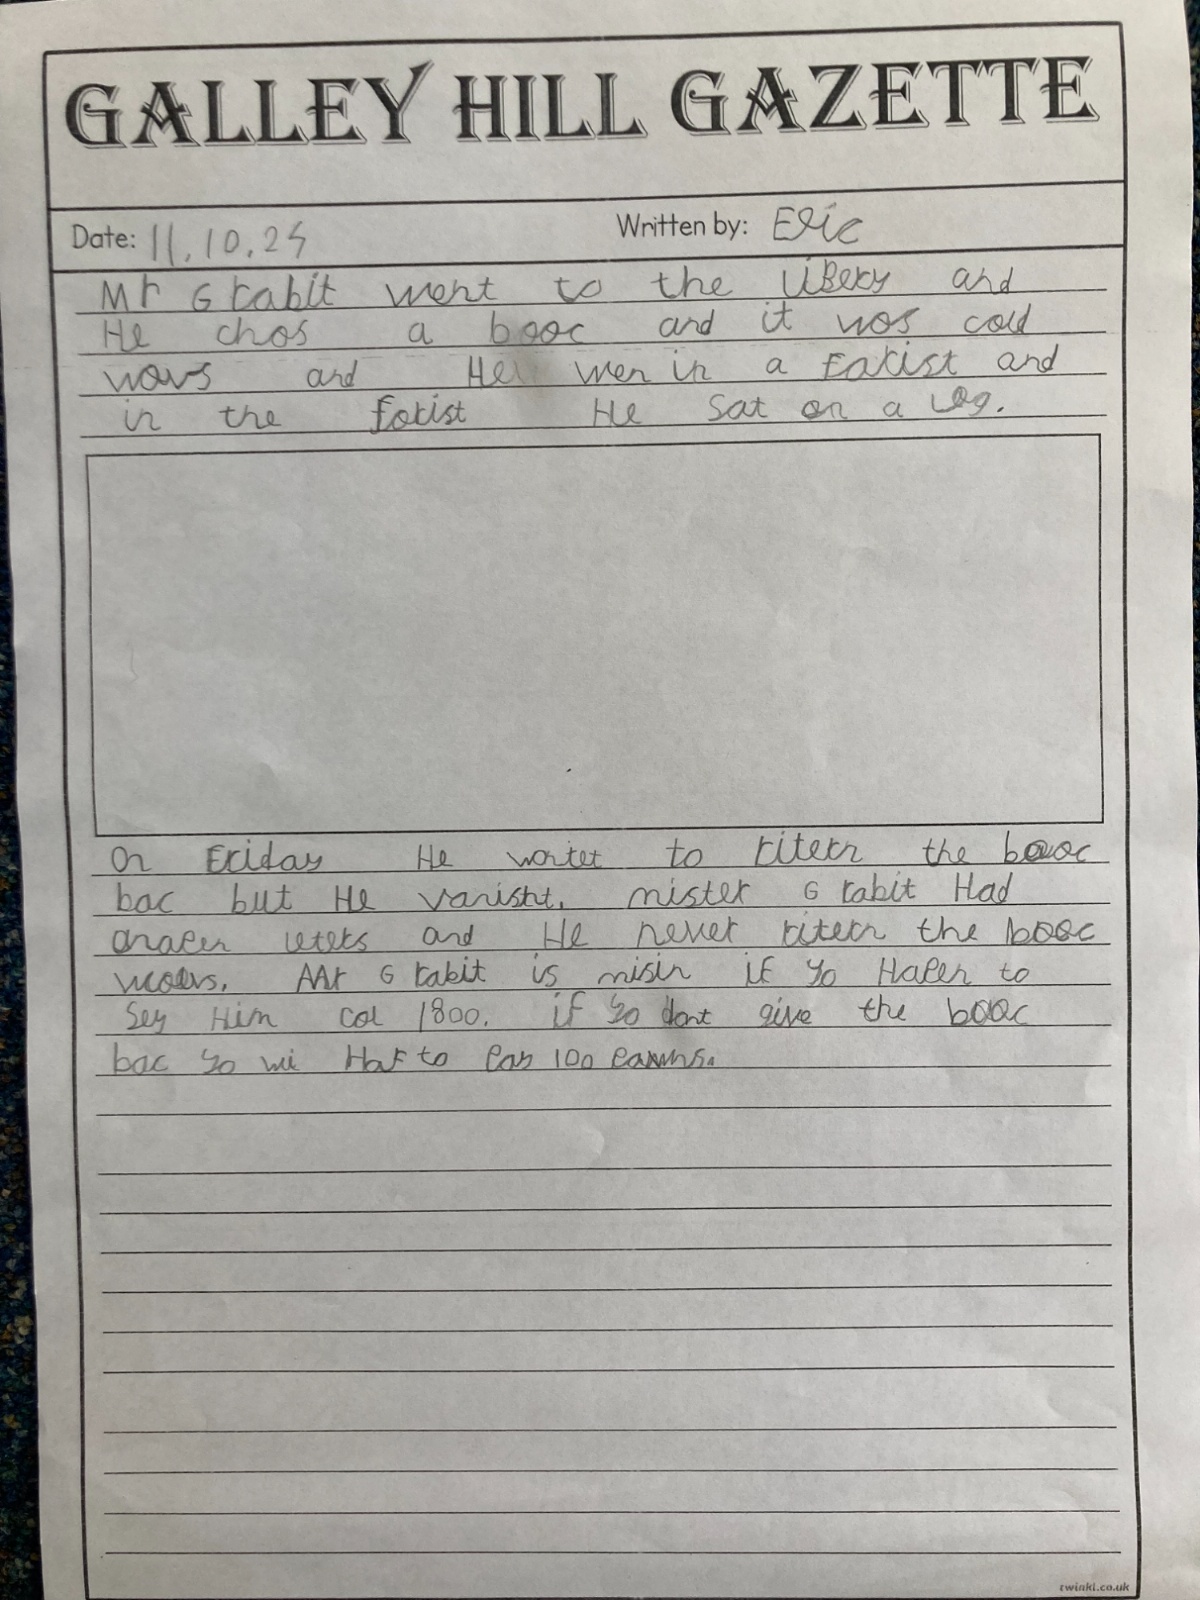 GALLEY HILL GAZETTE
Date: 11.10.24
Written by: Eric
Mr G rabit went to the liBery and
He chos a booc and it wos cold
wovs and He wen in a Forist and
in the forist He Sat on a log.
On Friday He wontet to ritern the booc
bac but He vanisht. mister G rabit Had
and He never ritern the booc
Mr G rabit is misin if yo HaPen to
Sey Him col 1800. if yo dont give the booc
bac yo wi Haf to Pay 100
twinkl.co.uk